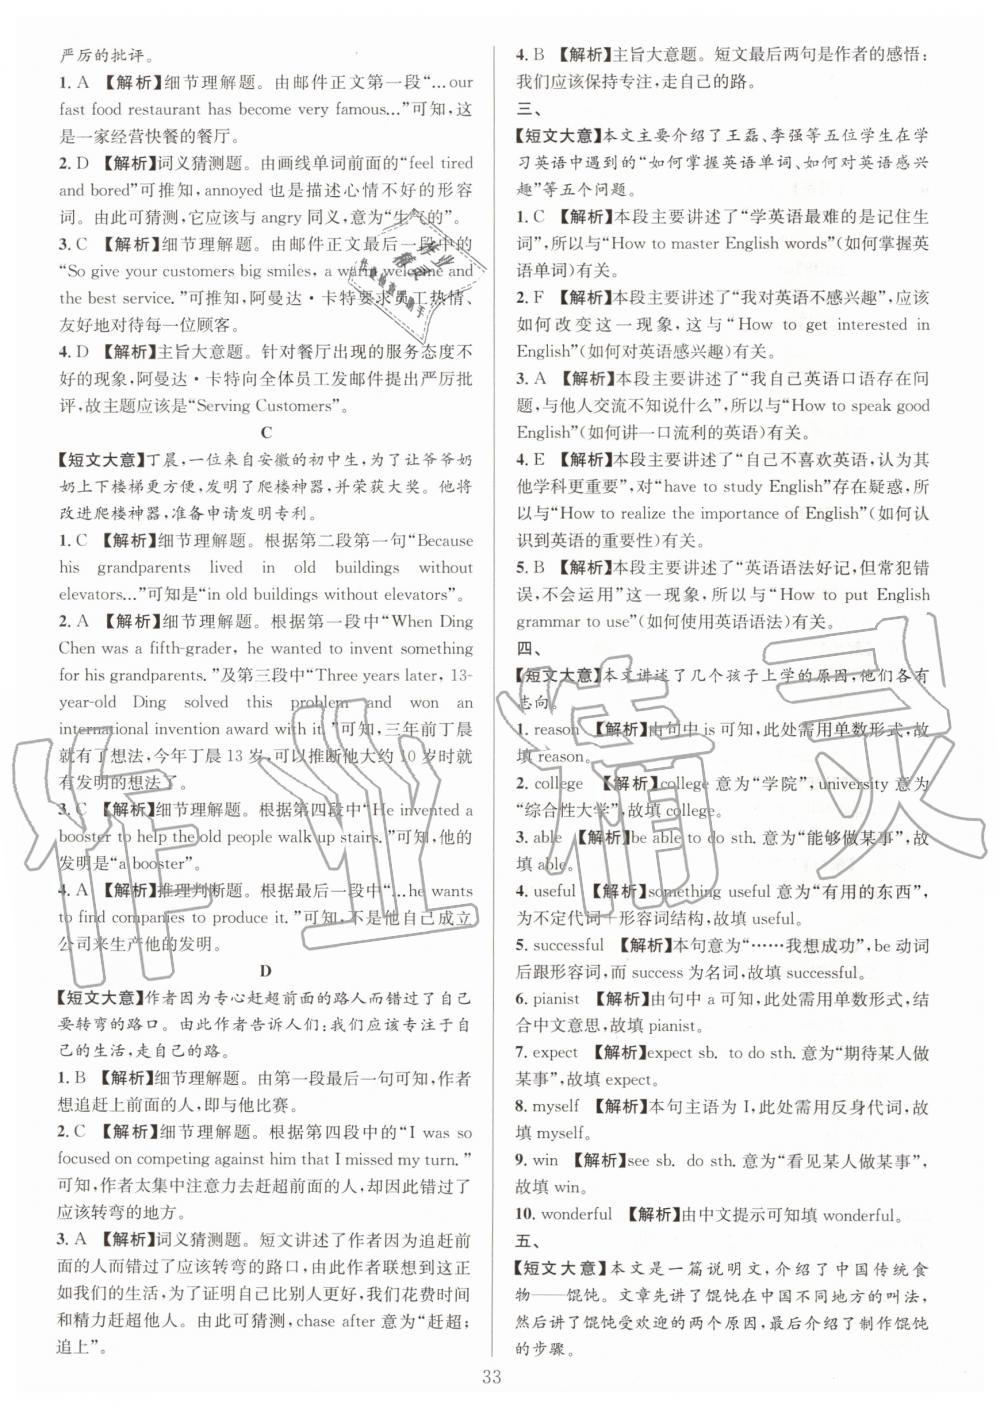 严厉的批评。
1. A 【解析】细节理解题。由邮件正文第一段“…our
fast food restaurant has become very famous…”可知，这
是一家经营快餐的餐厅。
2. D 【解析】词义猜测题。由画线单词前面的“feel tired
and bored”可推知，annoyed 也是描述心情不好的形容
词。由此可猜测，它应该与 angry 同义，意为“生气的”。
3. C 【解析】细节理解题。由邮件正文最后一段中的
“So give your customers big smiles, a warm welcome and
the best service.”可推知，阿曼达·卡特要求员工热情、
友好地对待每一位顾客。
4. D 【解析】主旨大意题。针对餐厅出现的服务态度不
好的现象，阿曼达·卡特向全体员工发邮件提出严厉批
评，故主题应该是“Serving Customers”。
C
【短文大意】丁晨，一位来自安徽的初中生，为了让爷爷奶
奶上下楼梯更方便，发明了爬楼神器，并荣获大奖。他将
改进爬楼神器，准备申请发明专利。
1. C 【解析】细节理解题。根据第二段第一句“Because
his grandparents lived in old buildings without
elevators…”可知是“in old buildings without elevators”。
2. A 【解析】细节理解题。根据第一段中“When Ding
Chen was a fifth-grader, he wanted to invent something
for his grandparents.”及第三段中“Three years later, 13-
year-old Ding solved this problem and won an
international invention award with it.”可知，三年前丁晨
就有了想法，今年丁晨 13 岁，可以推断他大约 10 岁时就
有发明的想法了。
3. C 【解析】细节理解题。根据第四段中“He invented a
booster to help the old people walk up stairs.”可知，他的
发明是“a booster”。
4. A 【解析】推理判断题。根据最后一段中“…he wants
to find companies to produce it.”可知，不是他自己成立
公司来生产他的发明。
D
【短文大意】作者因为专心赶超前面的路人而错过了自己
要转弯的路口。由此作者告诉人们：我们应该专注于自
己的生活，走自己的路。
1. B 【解析】细节理解题。由第一段最后一句可知，作者
想追赶上前面的人，即与他比赛。
2. C 【解析】细节理解题。根据第四段中的“I was so
focused on competing against him that I missed my turn.”
可知，作者太集中注意力去赶超前面的人，却因此错过了
应该转弯的地方。
3. A 【解析】词义猜测题。短文讲述了作者因为追赶前
面的人而错过了应该转弯的路口，由此作者联想到这正
如我们的生活，为了证明自己比别人更好，我们花费时间
和精力赶超他人。由此可猜测，chase after 意为“赶超；
追上”。
4. B 【解析】主旨大意题。短文最后两句是作者的感悟：
我们应该保持专注，走自己的路。
三、
【短文大意】本文主要介绍了王磊、李强等五位学生在学
习英语中遇到的“如何掌握英语单词、如何对英语感兴
趣”等五个问题。
1. C 【解析】本段主要讲述了“学英语最难的是记住生
词”，所以与“How to master English words”（如何掌握英
语单词）有关。
2. F 【解析】本段主要讲述了“我对英语不感兴趣”，应该
如何改变这一现象，这与“How to get interested in
English”（如何对英语感兴趣）有关。
3. A 【解析】本段主要讲述了“我自己英语口语存在问
题，与他人交流不知说什么”，所以与“How to speak good
English”（如何讲一口流利的英语）有关。
4. E 【解析】本段主要讲述了“自己不喜欢英语，认为其
他学科更重要”，对“have to study English”存在疑惑，所
以与“How to realize the importance of English”（如何认
识到英语的重要性）有关。
5. B 【解析】本段主要讲述了“英语语法好记，但常犯错
误，不会运用”这一现象，所以与“How to put English
grammar to use”（如何使用英语语法）有关。
四、
【短文大意】本文讲述了几个孩子上学的原因，他们各有
志向。
1. reason 【解析】由句中 is 可知，此处需用单数形式，故
填 reason。
2. college 【解析】college 意为“学院”，university 意为
“综合性大学”，故填 college。
3. able 【解析】be able to do sth. 意为“能够做某事”，故
填 able。
4. useful 【解析】something useful 意为“有用的东西”，
为不定代词＋形容词结构，故填 useful。
5. successful 【解析】本句意为“……我想成功”，be 动词
后跟形容词，而 success 为名词，故填 successful。
6. pianist 【解析】由句中 a 可知，此处需用单数形式，结
合中文意思，故填 pianist。
7. expect 【解析】expect sb. to do sth. 意为“期待某人做
某事”，故填 expect。
8. myself 【解析】本句主语为 I，此处需用反身代词，故
填 myself。
9. win 【解析】see sb. do sth. 意为“看见某人做某事”，
故填 win。
10. wonderful 【解析】由中文提示可知填 wonderful。
五、
【短文大意】本文是一篇说明文，介绍了中国传统食
物——馄饨。文章先讲了馄饨在中国不同地方的叫法，
然后讲了馄饨受欢迎的两个原因，最后介绍了制作馄饨
的步骤。
33
作业精灵